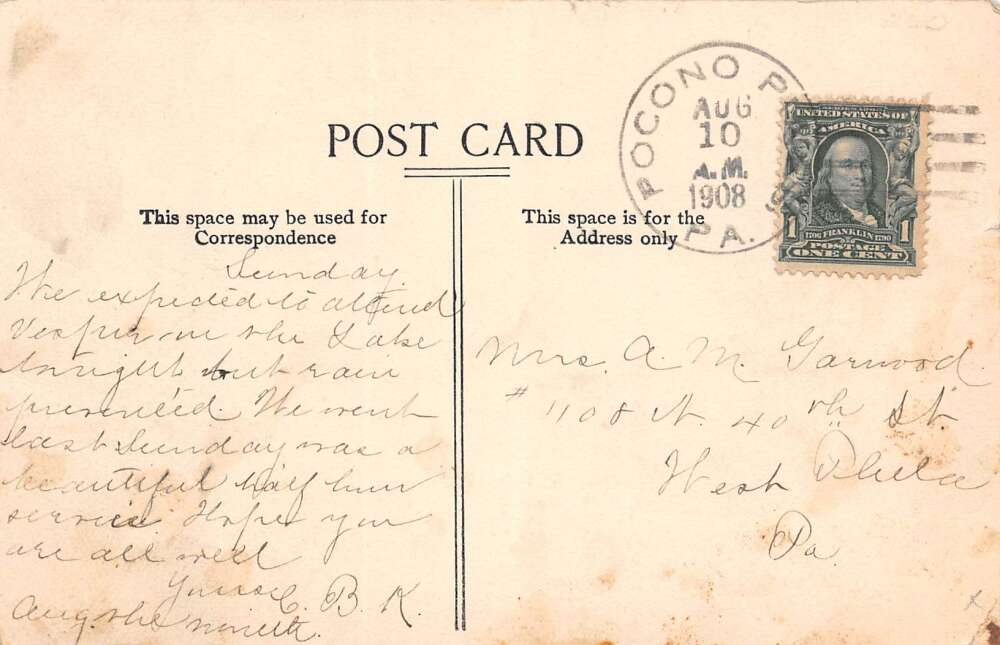 POST CARD
This space may be used for
Correspondence
This space is for the
Address only
POCONO P
AUG
10
A.M.
1908
PA.
SERIES 1902
UNITED STATES OF
AMERICA
1 1706 FRANKLIN 1790 1
POSTAGE
ONE CENT
Sunday
We expected to attend
Vesper on the Lake
tonight but rain
prevented. We went
last Sunday was a
beautiful half hour
service. Hope you
are all well
Yours C. B. K.
Aug. the nineth.
Mrs. A. M. Garwood.
# 1108 N. 40th St.
West Phila
Pa
x